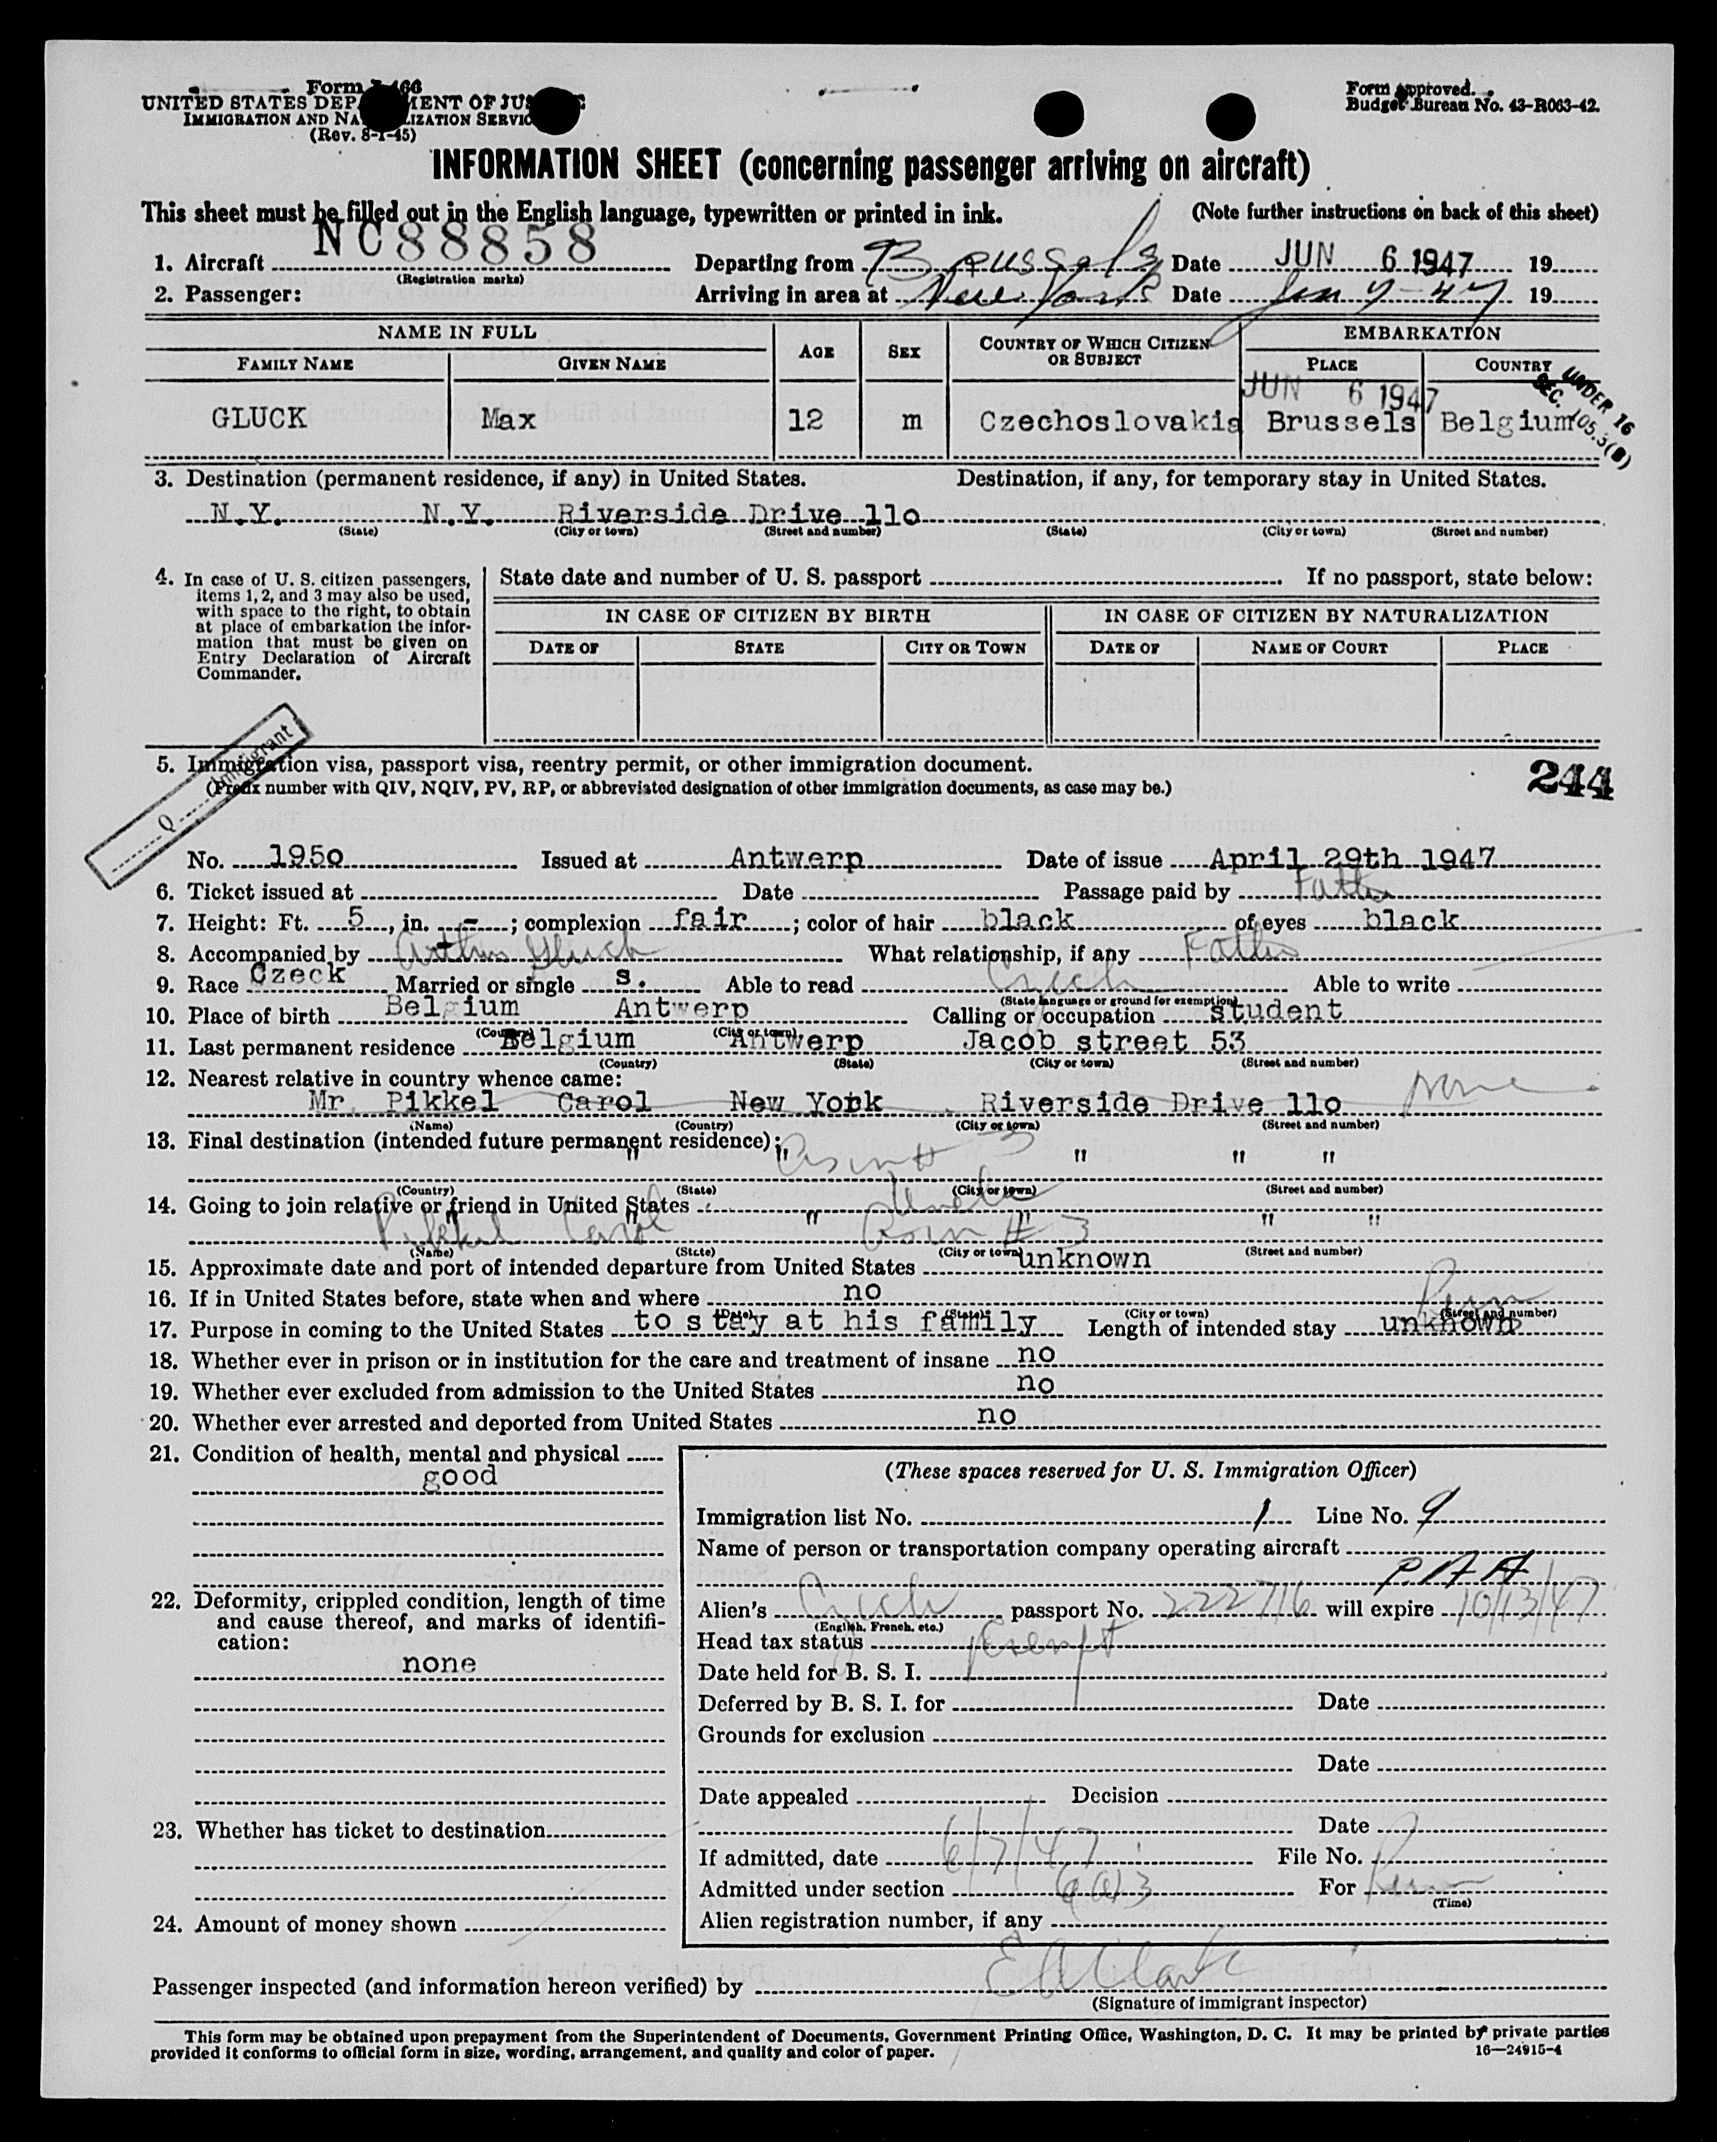 Form I-466
UNITED STATES DEPARTMENT OF JUSTICE
IMMIGRATION AND NATURALIZATION SERVICE
(Rev. 8-1-45)
Form approved.
Budget Bureau No. 43-R063-42.
INFORMATION SHEET (concerning passenger arriving on aircraft)
This sheet must be filled out in the English language, typewritten or printed in ink. (Note further instructions on back of this sheet)
1. Aircraft NC88858 Departing from Brussels Date JUN 6 1947 19
(Registration marks)
2. Passenger: Arriving in area at New York Date Jun 7-47 19
NAME IN FULL AGE SEX COUNTRY OF WHICH CITIZEN OR SUBJECT EMBARKATION
FAMILY NAME GIVEN NAME PLACE COUNTRY
JUN 6 1947
UNDER 16
SEC. 105.3(B)
GLUCK Max 12 m Czechoslovakia Brussels Belgium
3. Destination (permanent residence, if any) in United States. Destination, if any, for temporary stay in United States.
N.Y. N.Y. Riverside Drive 11o
(State) (City or town) (Street and number) (State) (City or town) (Street and number)
4. In case of U. S. citizen passengers, items 1, 2, and 3 may also be used, with space to the right, to obtain at place of embarkation the information that must be given on Entry Declaration of Aircraft Commander.
State date and number of U. S. passport If no passport, state below:
IN CASE OF CITIZEN BY BIRTH IN CASE OF CITIZEN BY NATURALIZATION
DATE OF STATE CITY OR TOWN DATE OF NAME OF COURT PLACE
Q Immigrant
5. Immigration visa, passport visa, reentry permit, or other immigration document.
(Prefix number with QIV, NQIV, PV, RP, or abbreviated designation of other immigration documents, as case may be.)
244
No. 195o Issued at Antwerp Date of issue April 29th 1947
6. Ticket issued at Date Passage paid by Father
7. Height: Ft. 5, in. -; complexion fair; color of hair black of eyes black
8. Accompanied by Arthur Gluck What relationship, if any Father
9. Race Czeck Married or single s. Able to read Czech Able to write
(State language or ground for exemption)
10. Place of birth Belgium Antwerp Calling or occupation student
(Country) (City or town)
11. Last permanent residence Belgium Antwerp Jacob street 53
(Country) (State) (City or town) (Street and number)
12. Nearest relative in country whence came:
Mr. Pikkel Carol New York Riverside Drive 11o none
(Name) (Country) (City or town) (Street and number)
13. Final destination (intended future permanent residence):
" " " " "
(Country) (State) (City or town) (Street and number)
14. Going to join relative or friend in United States Uncle
" " " " " "
Pikkel Carol
(Name) (State) (City or town) (Street and number)
15. Approximate date and port of intended departure from United States unknown
16. If in United States before, state when and where no Perm
(Date) (State) (City or town) (Street and number)
17. Purpose in coming to the United States to stay at his family Length of intended stay unknown
18. Whether ever in prison or in institution for the care and treatment of insane no
19. Whether ever excluded from admission to the United States no
20. Whether ever arrested and deported from United States no
21. Condition of health, mental and physical
good
22. Deformity, crippled condition, length of time and cause thereof, and marks of identification:
none
23. Whether has ticket to destination
24. Amount of money shown
(These spaces reserved for U. S. Immigration Officer)
Immigration list No. 1 Line No. 9
Name of person or transportation company operating aircraft
P.A.A
Alien's Czech passport No. 222716 will expire 10/13/47
(English, French, etc.)
Head tax status Exempt
Date held for B. S. I.
Deferred by B. S. I. for Date
Grounds for exclusion
Date
Date appealed Decision
Date
If admitted, date 6/7/47 File No.
Admitted under section 6(a)3 For Perm
(Time)
Alien registration number, if any
Passenger inspected (and information hereon verified) by E A Clark
(Signature of immigrant inspector)
This form may be obtained upon prepayment from the Superintendent of Documents, Government Printing Office, Washington, D. C. It may be printed by private parties
provided it conforms to official form in size, wording, arrangement, and quality and color of paper. 16—24915-4